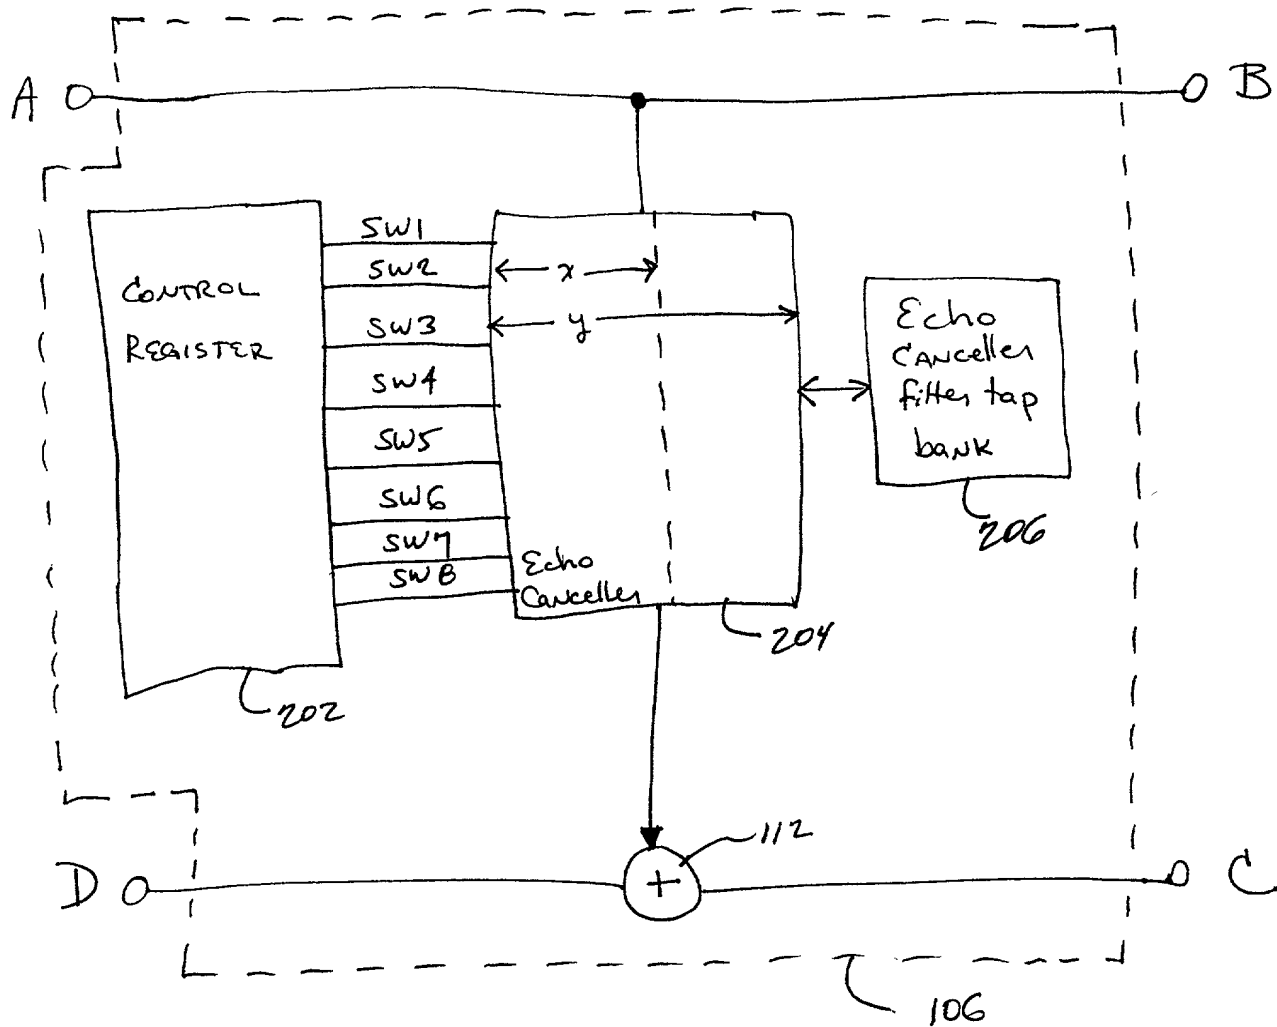 A
B
CONTROL
REGISTER
SW1
SW2
SW3
SW4
SW5
SW6
SW7
SW8
x
y
Echo
Canceller
Echo
Canceller
filter tap
bank
206
204
202
112
D
+
C
106